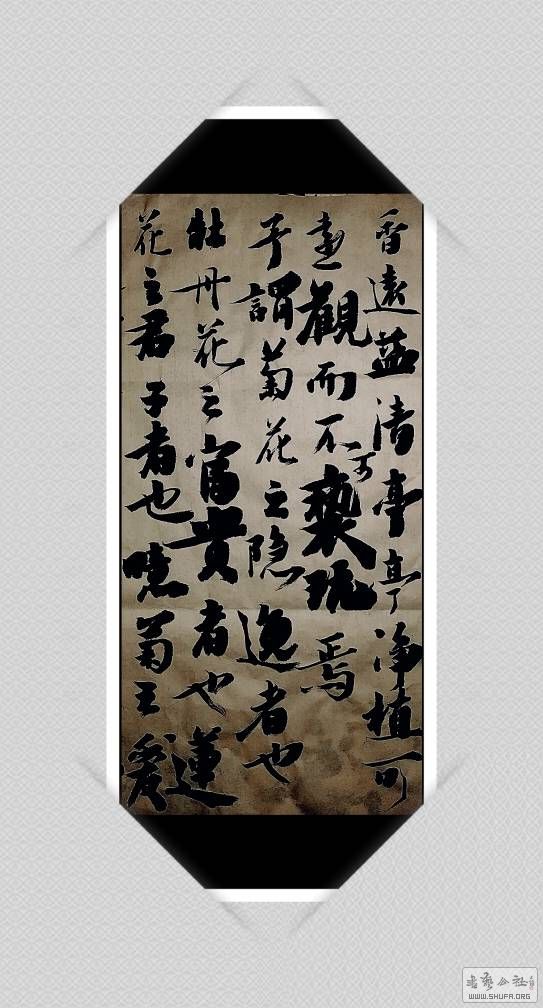 香遠益清亭亭净植可
遠觀而不可褻玩焉
予謂菊花之隐逸者也
牡丹花之富貴者也蓮
花之君子者也噫菊之爱
书艺公社
WWW.SHUFA.ORG